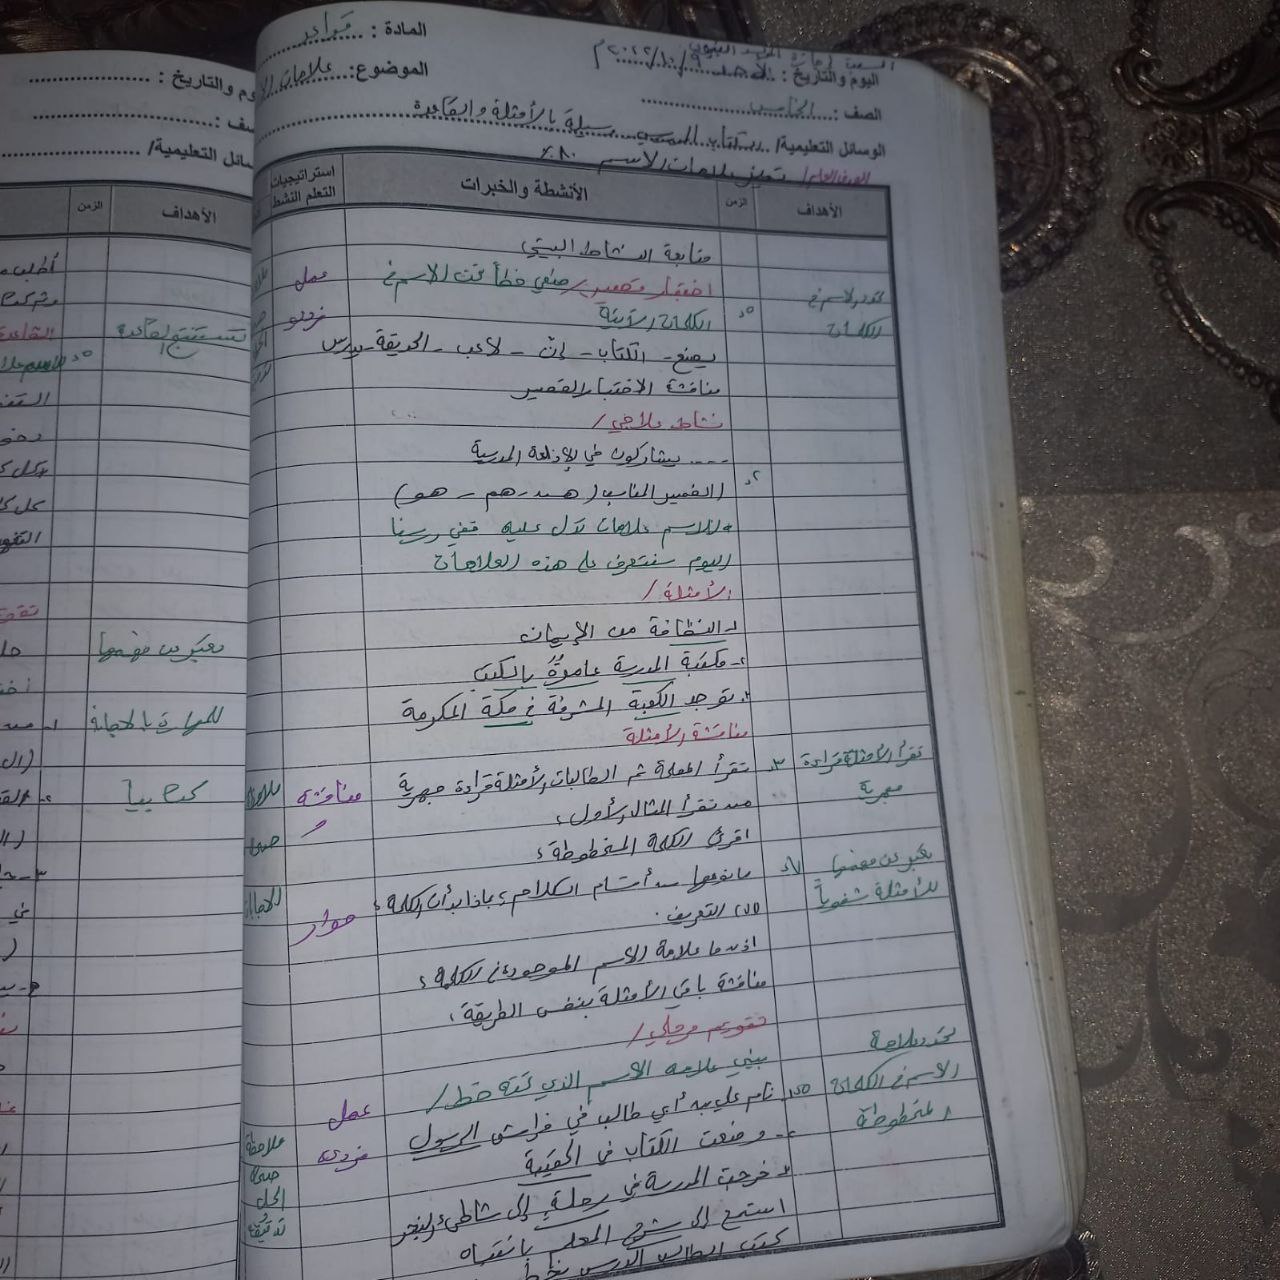 المادة : قواعد
اليوم والتاريخ : الأحد ٩/١٠/٢٠٢٢م
الموضوع: علامات
الصف : الخامس
الوسائل التعليمية/ الكتاب المدرسي سبورة بالأمثلة والقاعدة
تعيين علامات الاسم ٨٠٪
الأهداف
الزمن
الأنشطة والخبرات
استراتيجيات التعلم النشط
متابعة النشاط البيتي
تحدد الاسم في الكلمات
٥د
اختبار قصير/ ضعي خطاً تحت الاسم في
الكلمات الآتية
عمل
فردي
يصنع - الكتاب - إنّ - لاعب - الحديقة - يدرس
مناقشة الاختبار القصير
نشاط علاجي/
.... يشاركون في الإذاعة المدرسية
٢د
(الضمير المناسب (هند - هم - هو)
وللاسم علامات تدل عليه ففي درسنا
اليوم سنتعرف على هذه العلامات
الأمثلة/
١- النظافة من الإيمان
٢- مكتبة المدرسة عامرةٌ بالكتب
٣- توجد الكعبة المشرفة في مكة المكرمة
مناقشة الأمثلة
تقرأ الأمثلة قراءة جهرية
٣د
تقرأ المعلمة ثم الطالبات الأمثلة قراءة جهرية
مناقشة
من تقرأ المثال الأول؟
اقرئي الكلمة المخطوطة؟
تعبر عن فهمها للأمثلة شفوياً
٧د
ما نوعها من أقسام الكلام؟ بماذا بدأت الكلمة؟
حوار
ال التعريف.
إذن ما علامة الاسم الموجودة في الكلمة؟
مناقشة باقي الأمثلة بنفس الطريقة؟
تقويم مرحلي/
تحدد علامة
الاسم في الكلمات
المخطوطة
بيني علامة الاسم الذي تحته خط/
عمل
فردي
نام علي بن أبي طالب في فراش الرسول
٢- وضعت الكتاب في الحقيبة
خرجت المدرسة في رحلة إلى شاطئ البحر
استمع إلى شرح المعلم بانتباه
كتب الطالب الدرس بخط
ملاحظة
صحة
الحل
تدقيقه
اليوم والتاريخ :
الصف :
الوسائل التعليمية/
الزمن
الأهداف
تستنتج القاعدة
القاعدة
٥د
تعبر عن فهمها
للمهارة بالإجابة
كتابياً